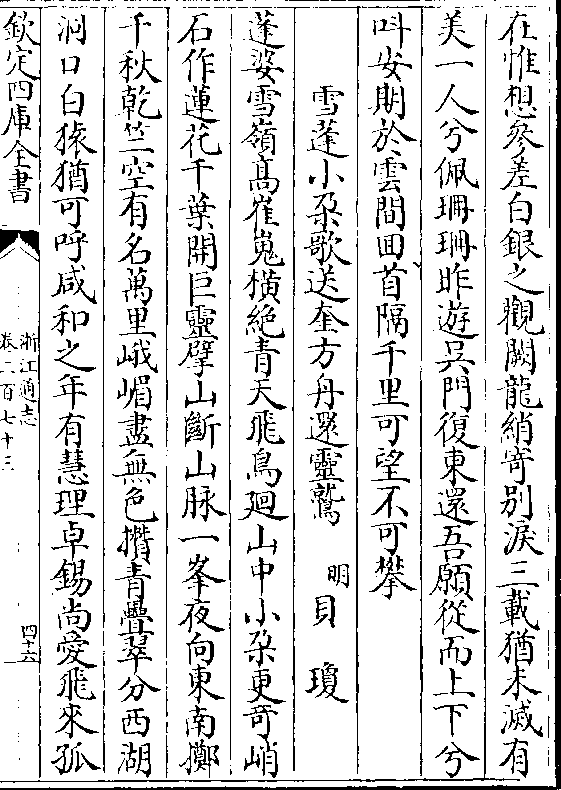 在惟想參差白銀之觀闕龍綃寄别淚三載猶未滅有
美一人兮佩珊珊昨遊吳門復東還吾願從而上下兮
呌安期於雲間囬首隔千里可望不可攀
雪蓬小朶歌送奎方舟還靈鷲 明 貝瓊
蓬婆雪嶺髙崔嵬橫絶青天飛鳥廻山中小朶更奇峭
石作蓮花千葉開巨靈擘山斷山脉一峯夜向東南擲
千秋乾竺空有名萬里峨嵋盡無色攢青疊翠分西湖
洞口白猿猶可呼咸和之年有慧理卓錫尚愛飛來孤
欽定四庫全書
浙江通志
卷二百七十三
四十六